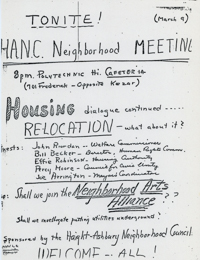 TONITE! (March 9)
H.A.N.C. Neighborhood MEETING
8pm. POLYTECHNIC Hi. CAFETERIA
(701 Frederick - Opposite Kezar)
HOUSING dialogue continued.....
RELOCATION - what about it?
Guests: John Riordan - Welfare Commissioner
Bill Becker - Director, Human Rights Comm.
Effie Robinson - Housing Authority
Percy Moore - Council for Civic Unity
Sue Arrington - Mayor's Coordinators
Shall we join the Neighborhood Arts
Alliance??
Shall we investigate putting utilities underground?
Sponsored by the Haight-Ashbury Neighborhood Council.
WELCOME... ALL!